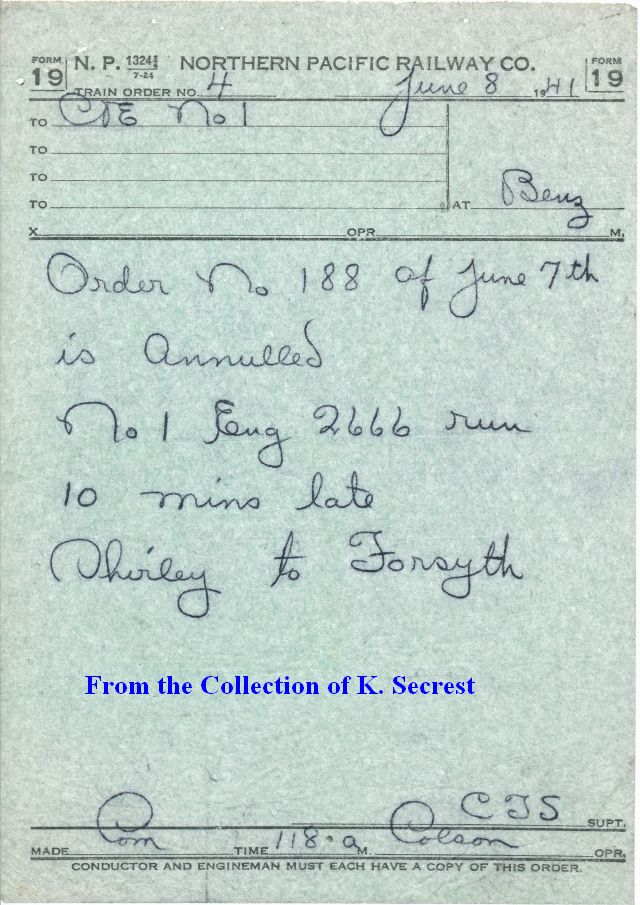 FORM 19 N. P. 1324½ 7-24 NORTHERN PACIFIC RAILWAY CO. FORM 19
TRAIN ORDER NO. 4 June 8 1941
TO C&E No 1
TO
TO
TO AT Benz
X OPR. M.
Order No 188 of June 7th
is Annulled
No 1 Eng 2666 run
10 mins late
Shirley to Forsyth
From the Collection of K. Secrest
CTS SUPT.
MADE Com TIME 118 a M. Colson OPR.
CONDUCTOR AND ENGINEMAN MUST EACH HAVE A COPY OF THIS ORDER.